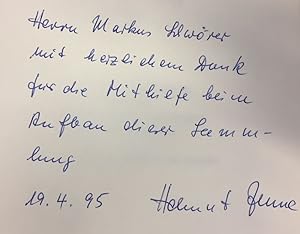 Herrn Markus
mit herzlichem Dank
für die Mithilfe beim
Aufbau dieser Samm-
lung
19.4.95 Helmut